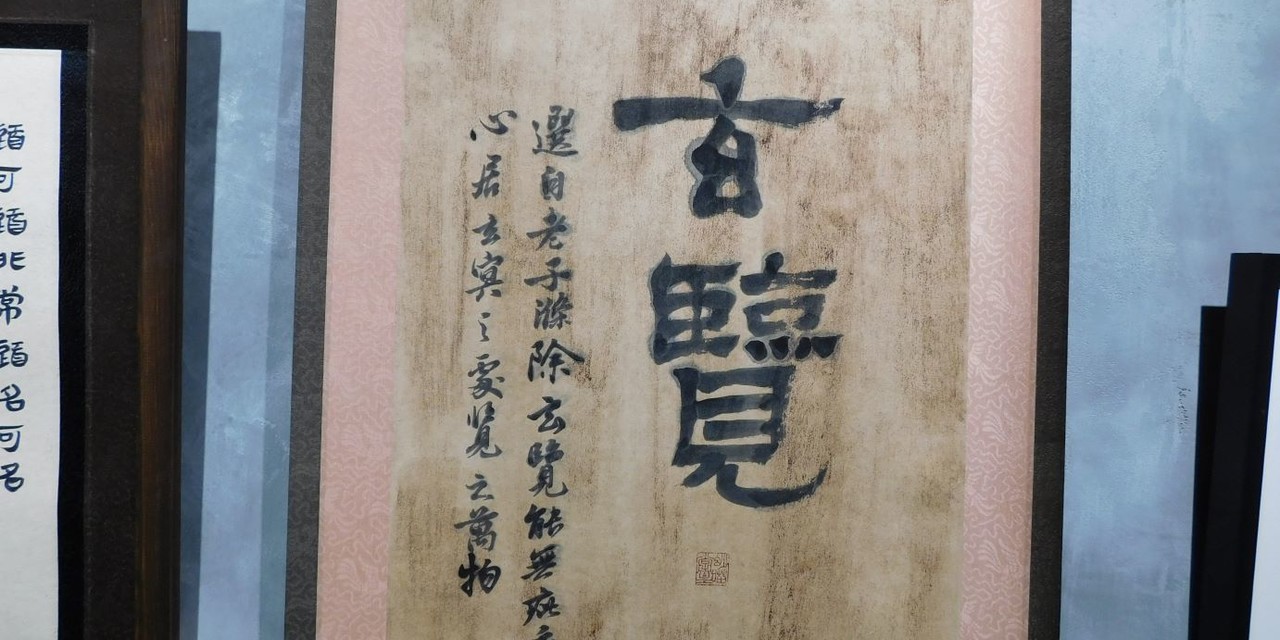 玄覽
選自老子滌除玄覽能無疵
心居玄冥之處覽云萬物
道可道非常道名可名